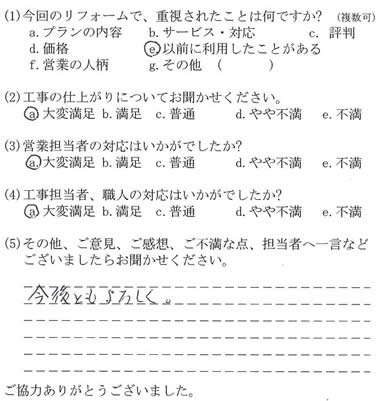 (1)今回のリフォームで、重視されたことは何ですか? (複数可)
a.プランの内容 b.サービス・対応 c. 評判
d.価格 e.以前に利用したことがある
f.営業の人柄 g.その他 ( )
(2)工事の仕上がりについてお聞かせください。
a.大変満足 b.満足 c.普通 d.やや不満 e.不満
(3)営業担当者の対応はいかがでしたか?
a.大変満足 b.満足 c.普通 d.やや不満 e.不満
(4)工事担当者、職人の対応はいかがでしたか?
a.大変満足 b.満足 c.普通 d.やや不満 e.不満
(5)その他、ご意見、ご感想、ご不満な点、担当者へ一言など
ございましたらお聞かせください。
今後ともよろしく。
ご協力ありがとうございました。